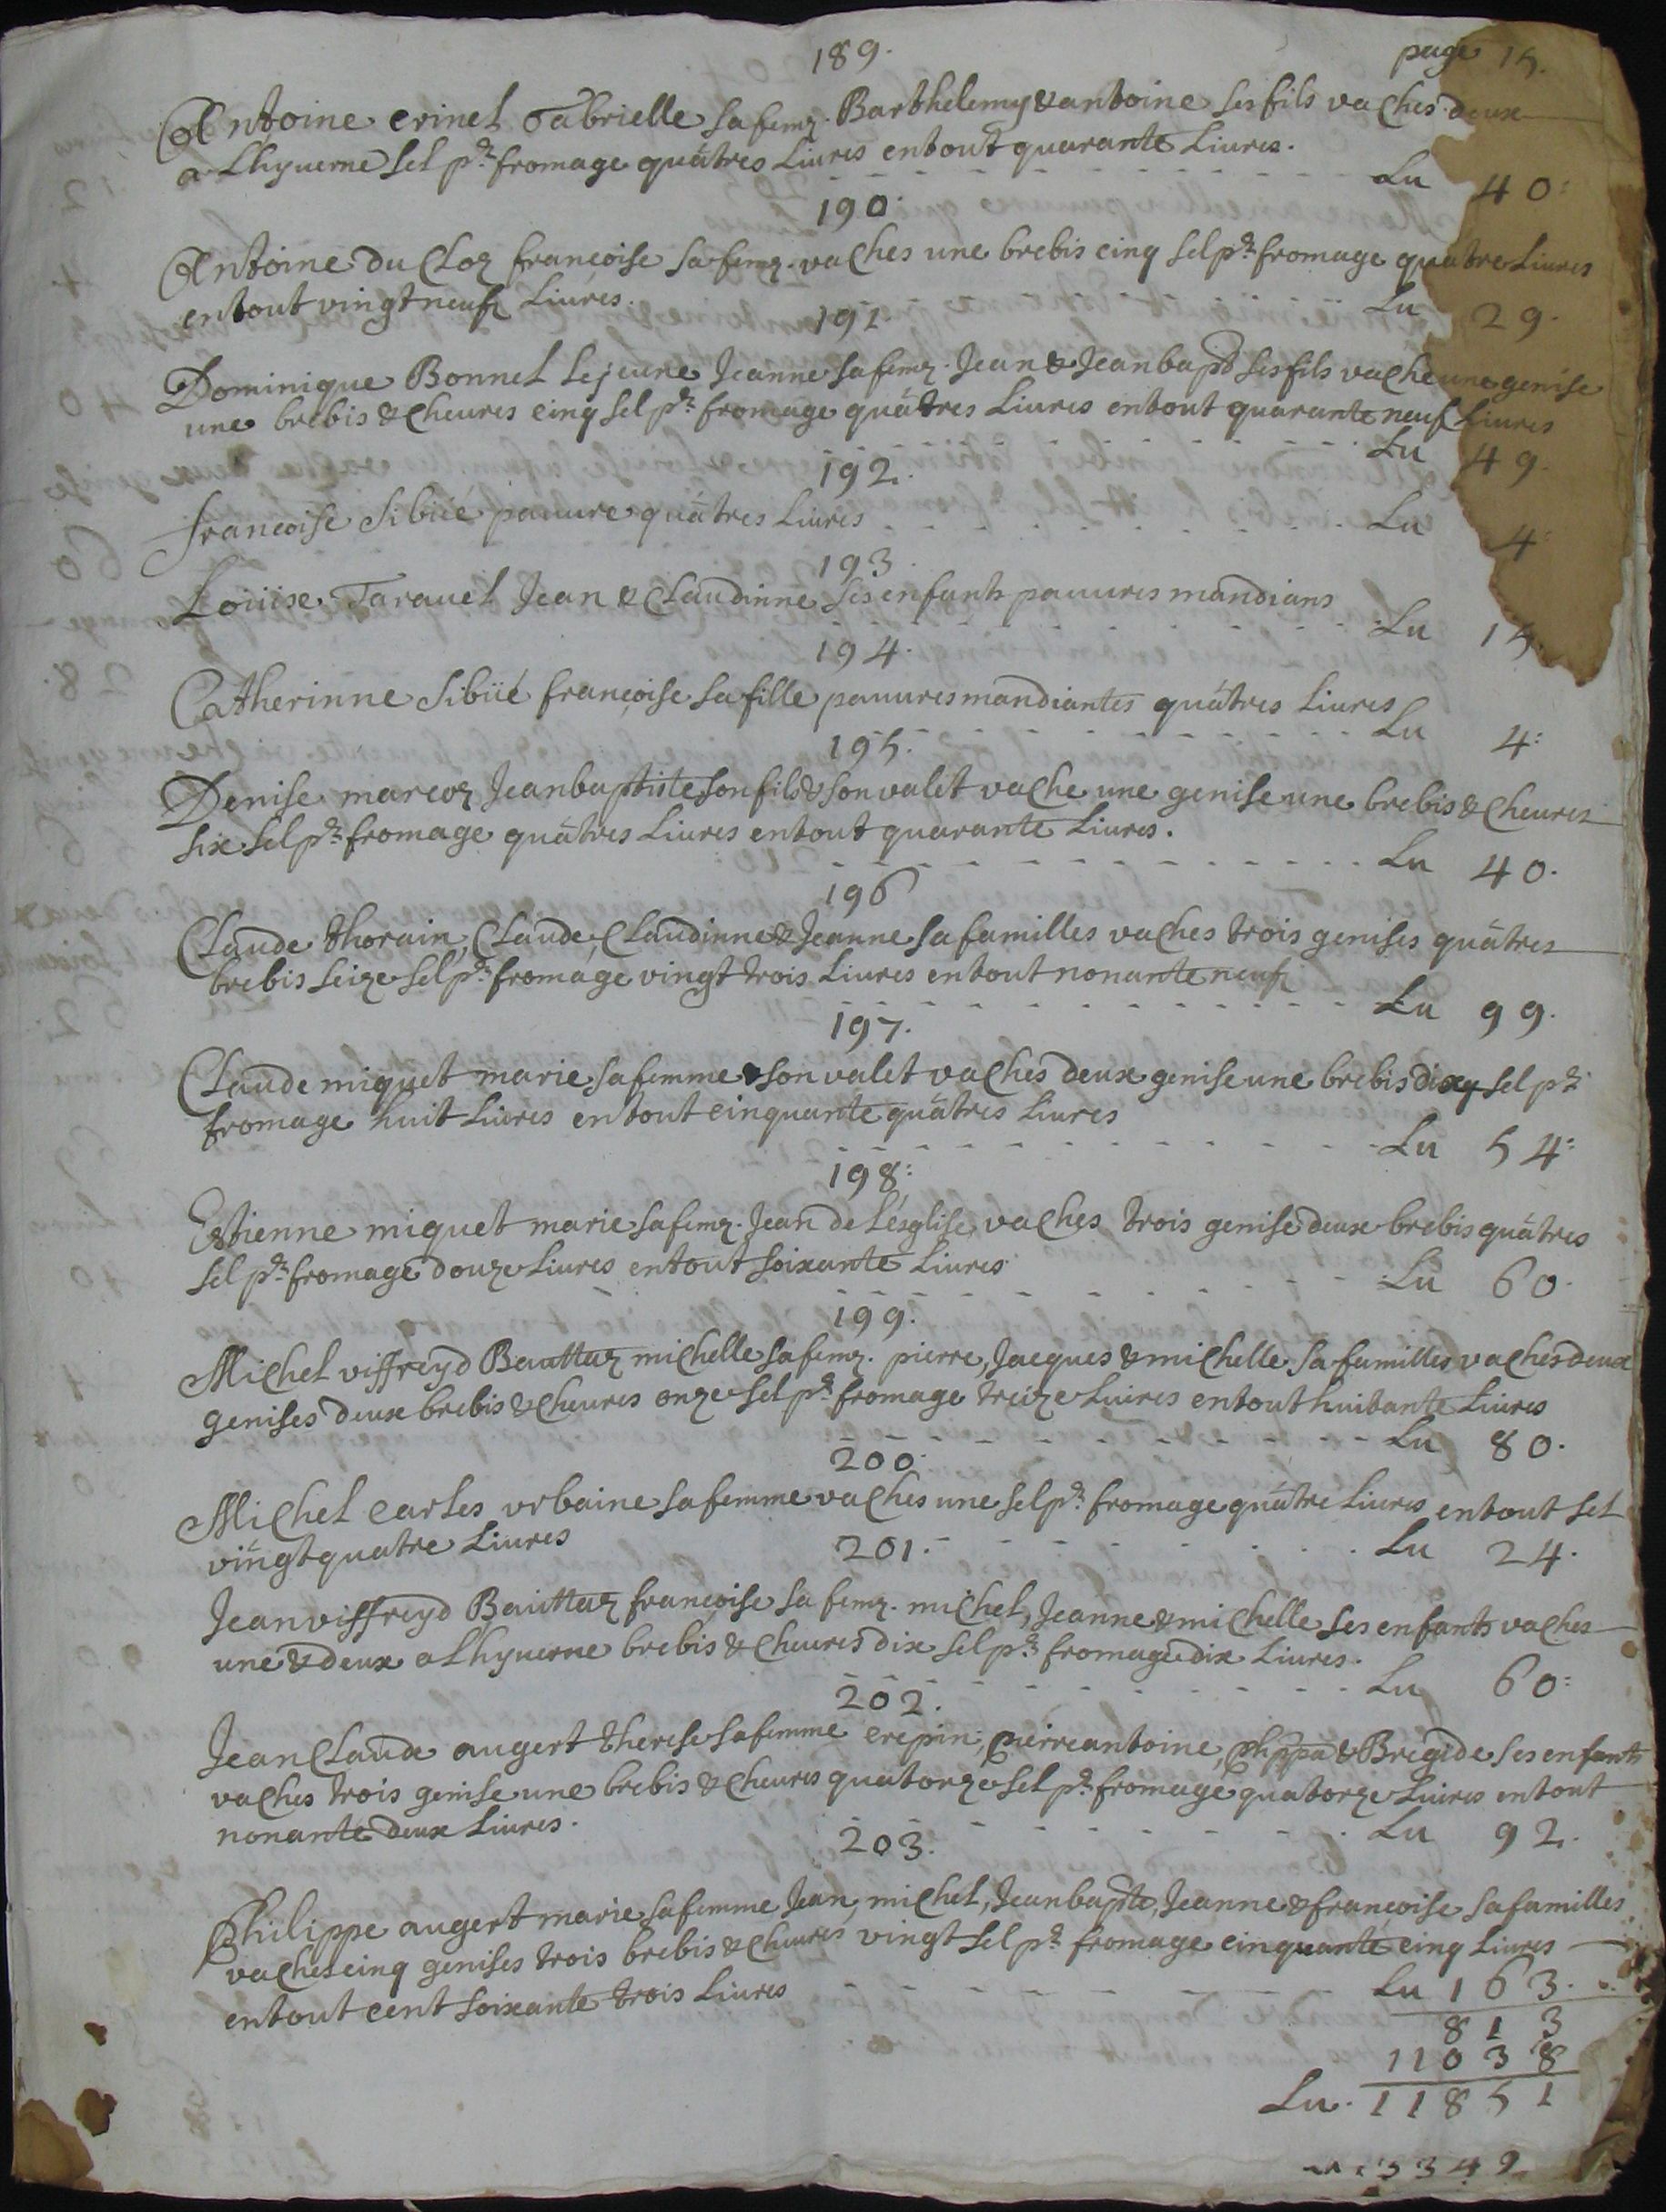 189. page 15.
Antoine crinel Gabrielle sa femᵉ. Barthelemy & antoine ses fils vaches deux
a Lhyuerne sel pʳ fromage quätres Liures en tout quarante Liures.
Lu 40:
190.
Antoine du Cloz francoise sa femᵉ. vaches une brebis cinq sel pʳ fromage quatre Liures
en tout vingt neuf Liures. Lu 29.
191.
Dominique Bonnel Lejeune Jeanne sa femᵉ. Jean & Jean bapᵗ ses fils vache une genise
une brebis & cheures cinq sel pʳ fromage quätres Liures en tout quarante neuf Liures
Lu 49.
192.
francoise Sibüé pauure quätres Liures Lu 4:
193.
Loüise Tarauel Jean & Claudinne ses enfants pauures mandians
Lu 15.
194.
Catherinne Sibüé françoise sa fille pauures mandiantes quätres Liures
Lu 4:
195.
Denise marcoz Jean baptiste son fils & son valet vache une genise une brebis & cheures
six sel pʳ fromage quätres Liures en tout quarante Liures.
Lu 40.
196
Claude thorain, Claude, Claudinne & Jeanne sa familles vaches trois genises quätres
brebis seize sel pʳ fromage vingt trois Liures en tout nonante neuf
Lu 99.
197.
Claude miquet marie sa femme & son valet vaches deux genise une brebis dix sel pʳ
fromage huit Liures en tout cinquante quätres Liures
Lu 54:
198:
Estienne miquet marie sa femᵉ. Jean de Lésglise vaches trois genise deux brebis quätres
sel pʳ fromage douze Liures en tout soixante Liures
Lu 60.
199.
Michel viffreyd Bauttaz michelle sa femᵉ. pierre, Jacques & michelle sa familles vaches deux
genises deux brebis & cheures onze sel pʳ fromage treize Liures en tout huitante Liures
Lu 80.
200.
Michel Carles vrbaine sa femme vaches une sel pʳ fromage quätre Liures en tout sel
vingt quatre Liures Lu 24.
201.
Jean viffreyd Bauttaz françoise sa femᵉ. michel, Jeanne & michelle ses enfants vaches
une & deux a Lhyuerne brebis & cheures dix sel pʳ fromage dix Liures.
Lu 60:
202.
Jean Claude augert therese sa femme crepin, pierre antoine, phppa & Brigide ses enfants
vaches trois genise une brebis & cheures quatorze sel pʳ fromage quatorze Liures en tout
nonante deux Liures. Lu 92.
203.
Philippe augert marie sa femme Jean, michel, Jean bapte, Jeanne & françoise sa familles
vaches cinq genises trois brebis & cheures vingt sel pʳ fromage cinquante cinq Liures
en tout cent soixante trois Liures Lu 163.
813
11038
Lu. 11851
3349